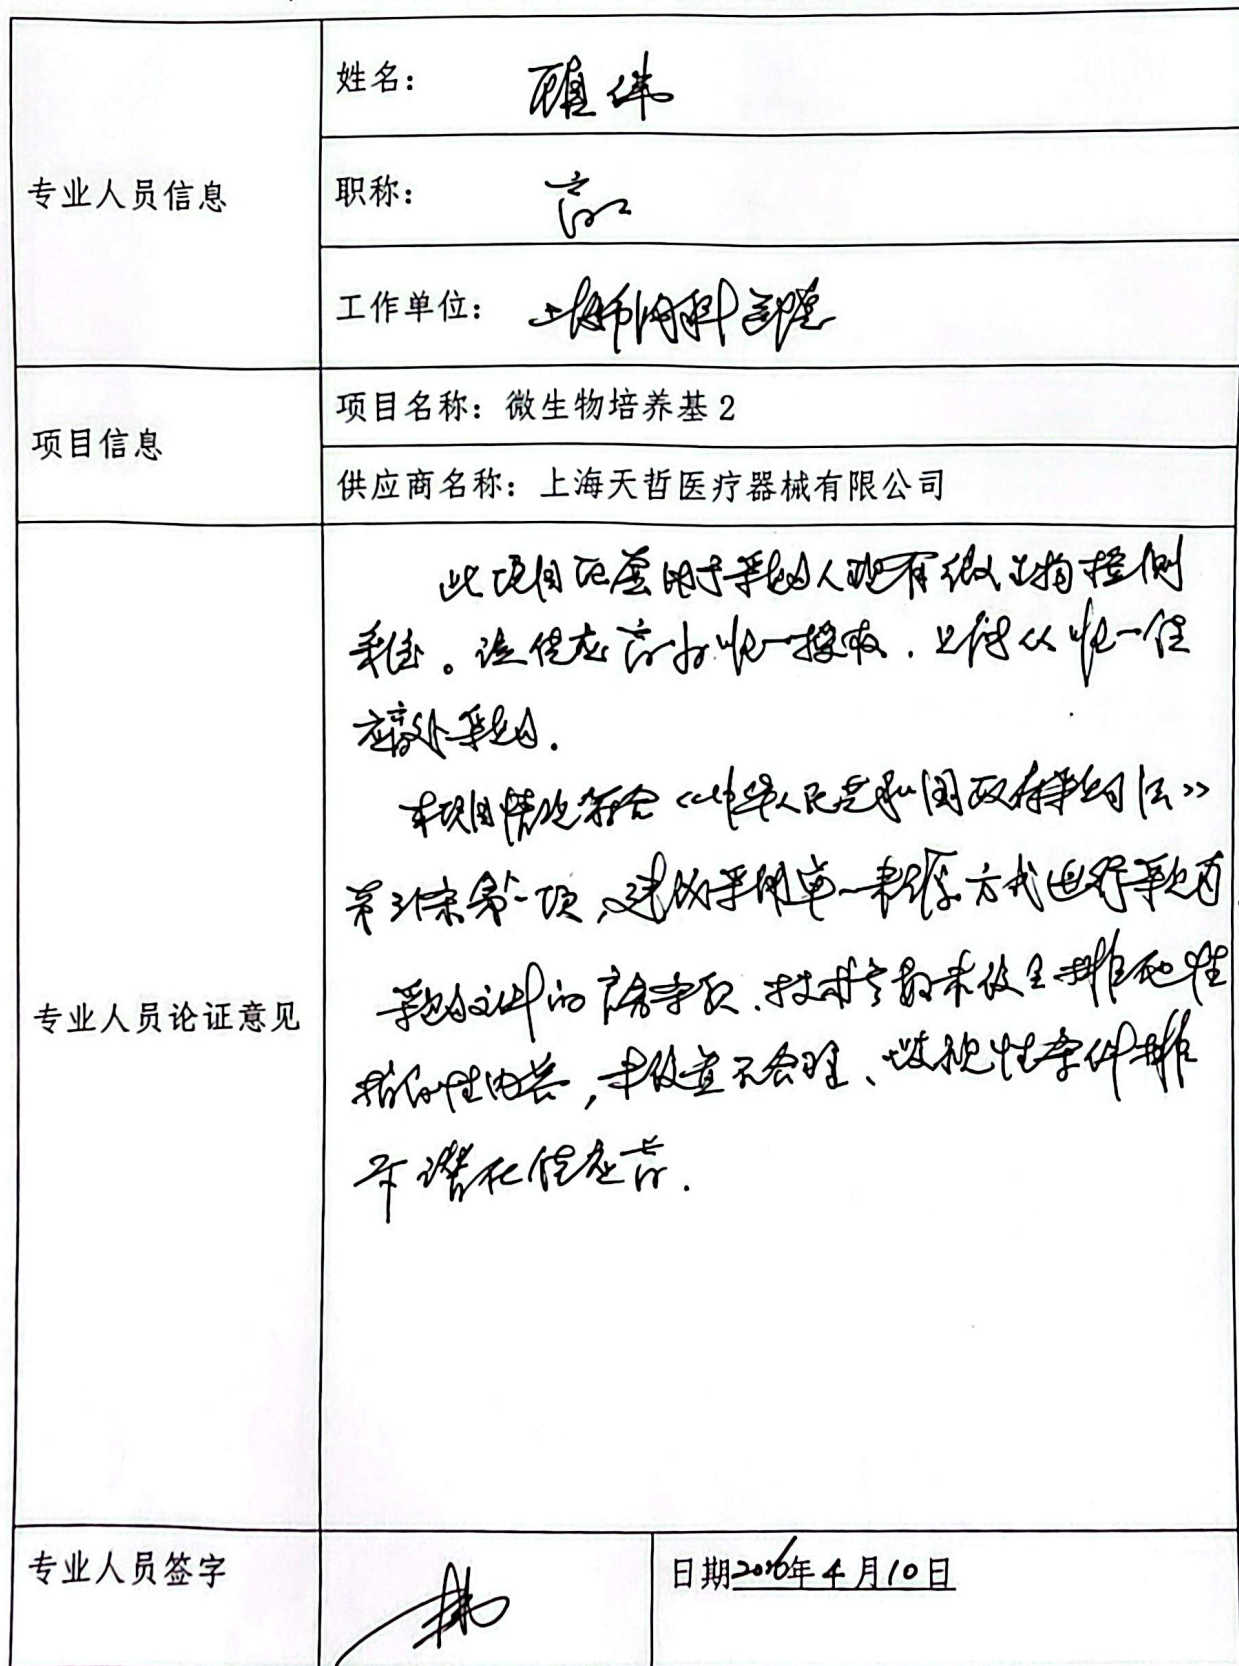 专业人员信息
姓名：顾伟
职称：高工
工作单位：上海市内科医院
项目信息
项目名称：微生物培养基2
供应商名称：上海天哲医疗器械有限公司
专业人员论证意见
此项目配套用于采购人现有微生物检测
系统。该供应商为唯一授权，只能从唯一供
应商处采购。
本项目情况符合《中华人民共和国政府采购法》
第三十一条第一项，建议采用单一来源方式进行采购
采购文件的商务条款、技术参数未设置排他性
指向性内容，未设置不合理、歧视性条件排
斥潜在供应商.
专业人员签字
日期2026年4月10日